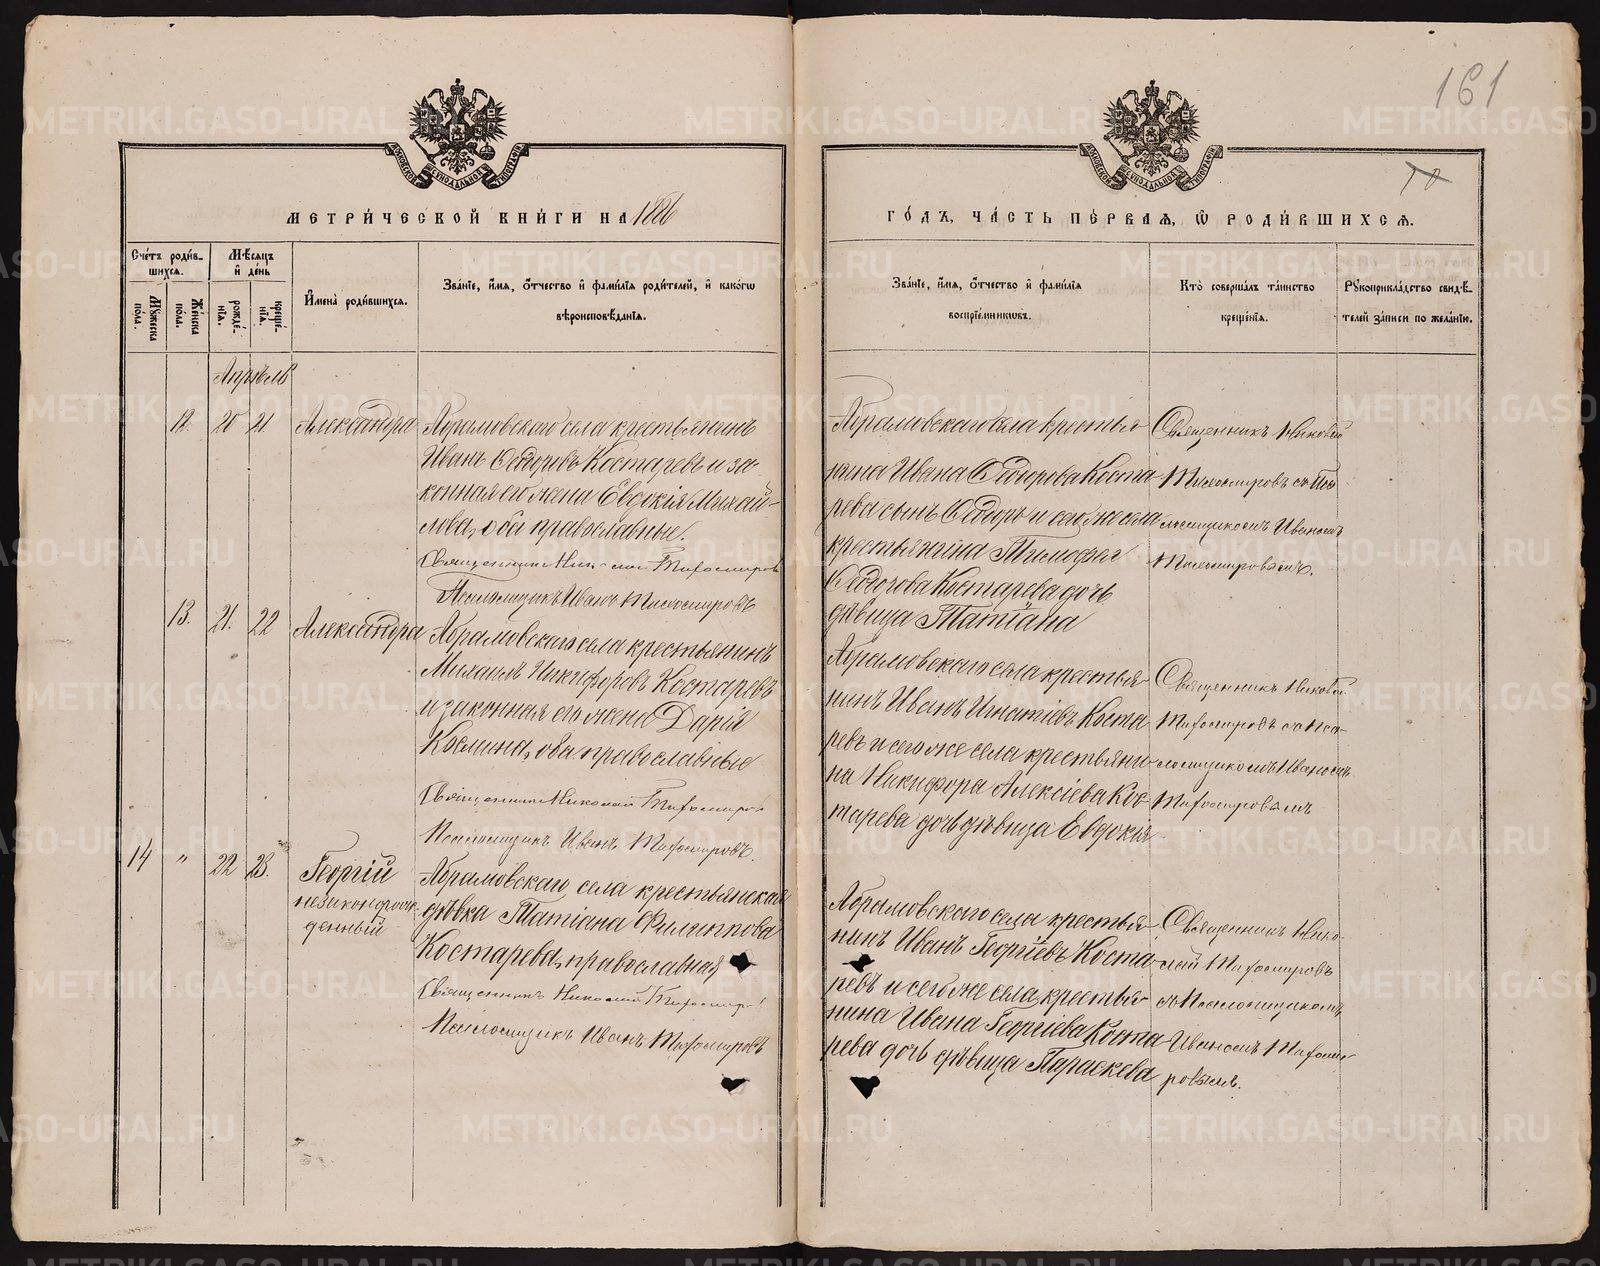 161
МОСКОВСКОЙ СѴНОДАЛЬНОЙ ТИПОГРАФІИ
МОСКОВСКОЙ СѴНОДАЛЬНОЙ ТИПОГРАФІИ
10
МЕТРИ́ЧЕСКОЙ КНИ́ГИ НА 1886
ГО́ДЪ, ЧА́СТЬ ПЕ́РВАѦ, Ѡ҆ РОДИ́ВШИХСѦ.
Сче́тъ роди́в-
шихся.
Мꙋ́жеска по́ла.
Же́нска по́ла.
Мѣ́сяцъ
и҆ де́нь
рожде́-
нїя.
креще́-
нїя.
И҆мена̀ роди́вшихся.
Зва́нїе, и҆́мя, ѻ҆́тчество и҆ фами́лїя роди́телей, и҆ како́гѡ
вѣроисповѣ́данїя.
Зва́нїе, и҆́мя, ѻ҆́тчество и҆ фами́лїя
воспрїе́мникѡвъ.
Кто̀ соверша́лъ та́инство
креще́нїя.
Рꙋкоприкла́дство свидѣ́-
телей за́писи по жела́нїю.
Апрѣль
12. 20 21. Александра
Абрамовскаго села крестьянинъ
Иванъ Ѳедоровъ Костаревъ и за-
конная его жена Евдокія Михай-
лова, оба православные.
Священникъ Николай Тихомировъ
Псаломщикъ Иванъ Тихомировъ
Абрамовскаго села крестья-
нина Ивана Ѳедорова Коста-
рева сынъ Ѳедоръ и того же села
крестьянина Тимофея
Ѳедорова Костарева дочь
дѣвица Татіана
Священникъ Николай
Тихомировъ съ Пса-
ломщикомъ Иваномъ
Тихомировымъ.
13. 21. 22 Александра
Абрамовскаго села крестьянинъ
Михаилъ Никифоровъ Костаревъ
и законная его жена Дарія
Космина, оба православные
Священникъ Николай Тихомировъ
Псаломщикъ Иванъ Тихомировъ.
Абрамовскаго села крестья-
нинъ Иванъ Игнатіевъ Коста-
ревъ и того же села крестьяни-
на Никифора Алексіева Кос-
тарева дочь дѣвица Евдокія
Священникъ Николай
Тихомировъ съ Пса-
ломщикомъ Иваномъ
Тихомировымъ
14 " 22 23. Георгій
незаконорож-
денный
Абрамовскаго села крестьянская
дѣвка Татіана Филиппова
Костарева, православная
Священникъ Николай Тихомировъ
Псаломщикъ Иванъ Тихомировъ
Абрамовскаго села крестья-
нинъ Иванъ Георгіевъ Коста-
ревъ и того же села крестья-
нина Ивана Георгіева Коста-
рева дочь дѣвица Параскева
Священникъ Нико-
лай Тихомировъ
съ Псаломщикомъ
Иваномъ Тихоми-
ровымъ.
METRIKI.GASO-URAL.RU